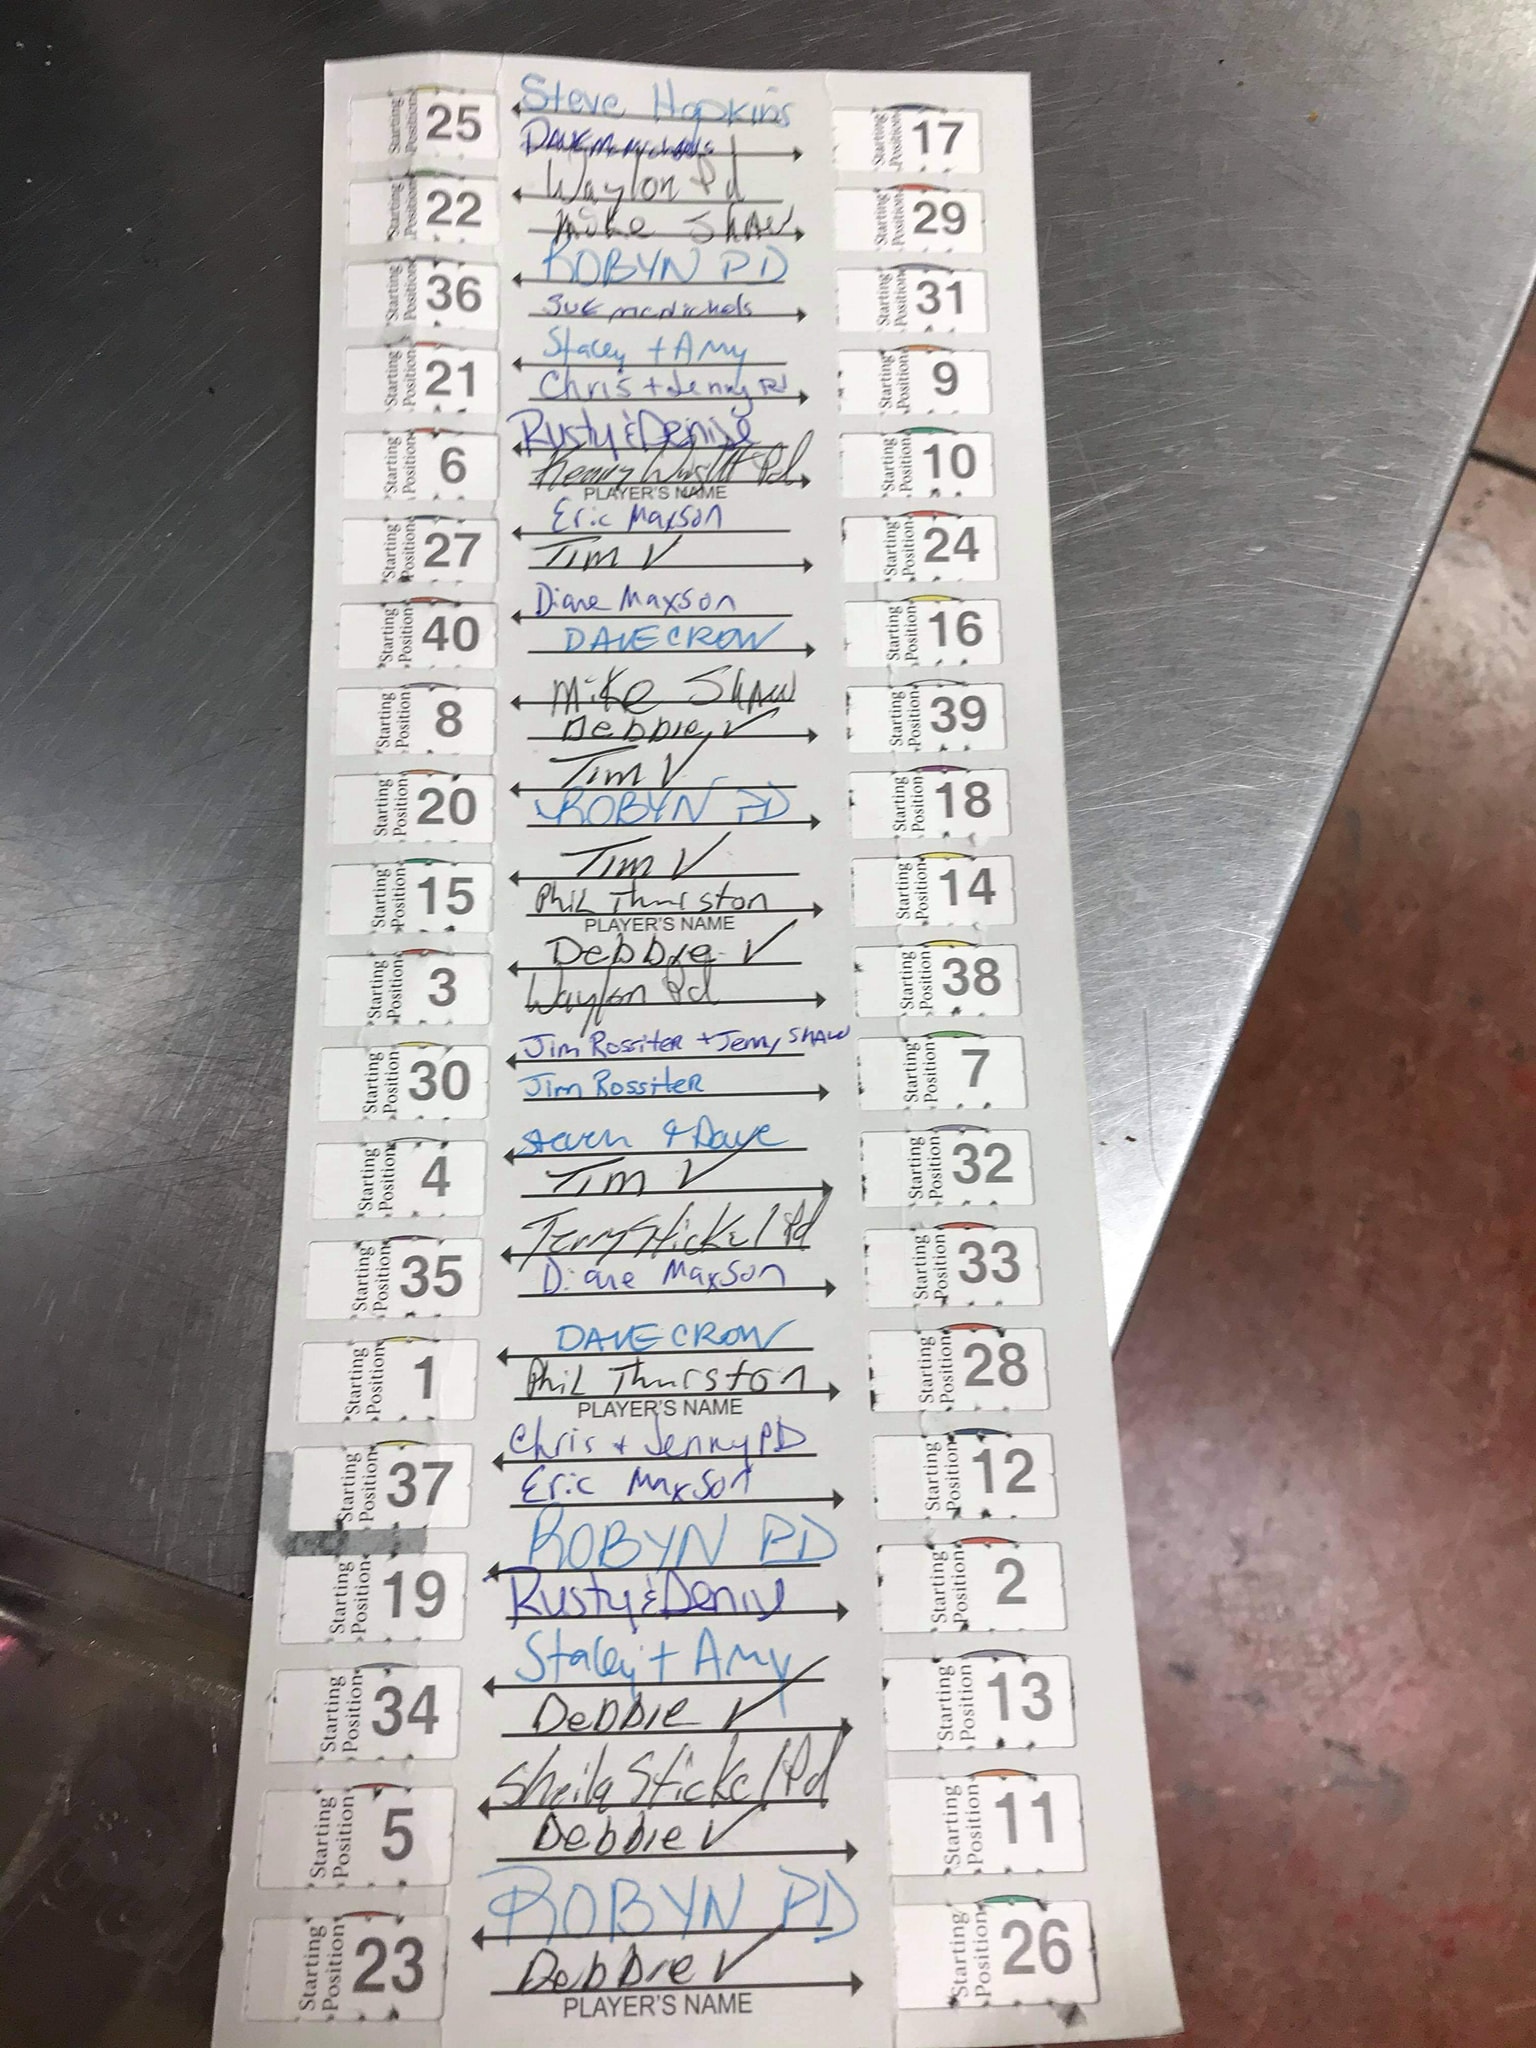 Starting Position 25 Steve Hopkins
Dave McNichols Starting Position 17
Starting Position 22 Waylon Pd
Mike Shaw Starting Position 29
Starting Position 36 ROBYN PD
Sue McNichols Starting Position 31
Starting Position 21 Stacey + Amy
Chris + Jenny Pd Starting Position 9
Starting Position 6 Rusty & Denise
Kenny Wright Pd Starting Position 10
PLAYER'S NAME
Starting Position 27 Eric Maxson
Tim V Starting Position 24
Starting Position 40 Diane Maxson
DAVE CROW Starting Position 16
Starting Position 8 Mike Shaw
Debbie V Starting Position 39
Starting Position 20 Tim V
ROBYN PD Starting Position 18
Starting Position 15 Tim V
Phil Thurston Starting Position 14
PLAYER'S NAME
Starting Position 3 Debbie V
Waylon Pd Starting Position 38
Starting Position 30 Jim Rossiter + Jenny SHAW
Jim Rossiter Starting Position 7
Starting Position 4 Steven & Dave
Tim V Starting Position 32
Starting Position 35 Terry Stickel Pd
Diane Maxson Starting Position 33
Starting Position 1 DAVE CROW
Phil Thurston Starting Position 28
PLAYER'S NAME
Starting Position 37 Chris + Jenny PD
Eric Maxson Starting Position 12
Starting Position 19 ROBYN PD
Rusty & Denise Starting Position 2
Starting Position 34 Stacey + Amy
Debbie V Starting Position 13
Starting Position 5 Sheila Stickel Pd
Debbie V Starting Position 11
Starting Position 23 ROBYN PD
Debbie V Starting Position 26
PLAYER'S NAME